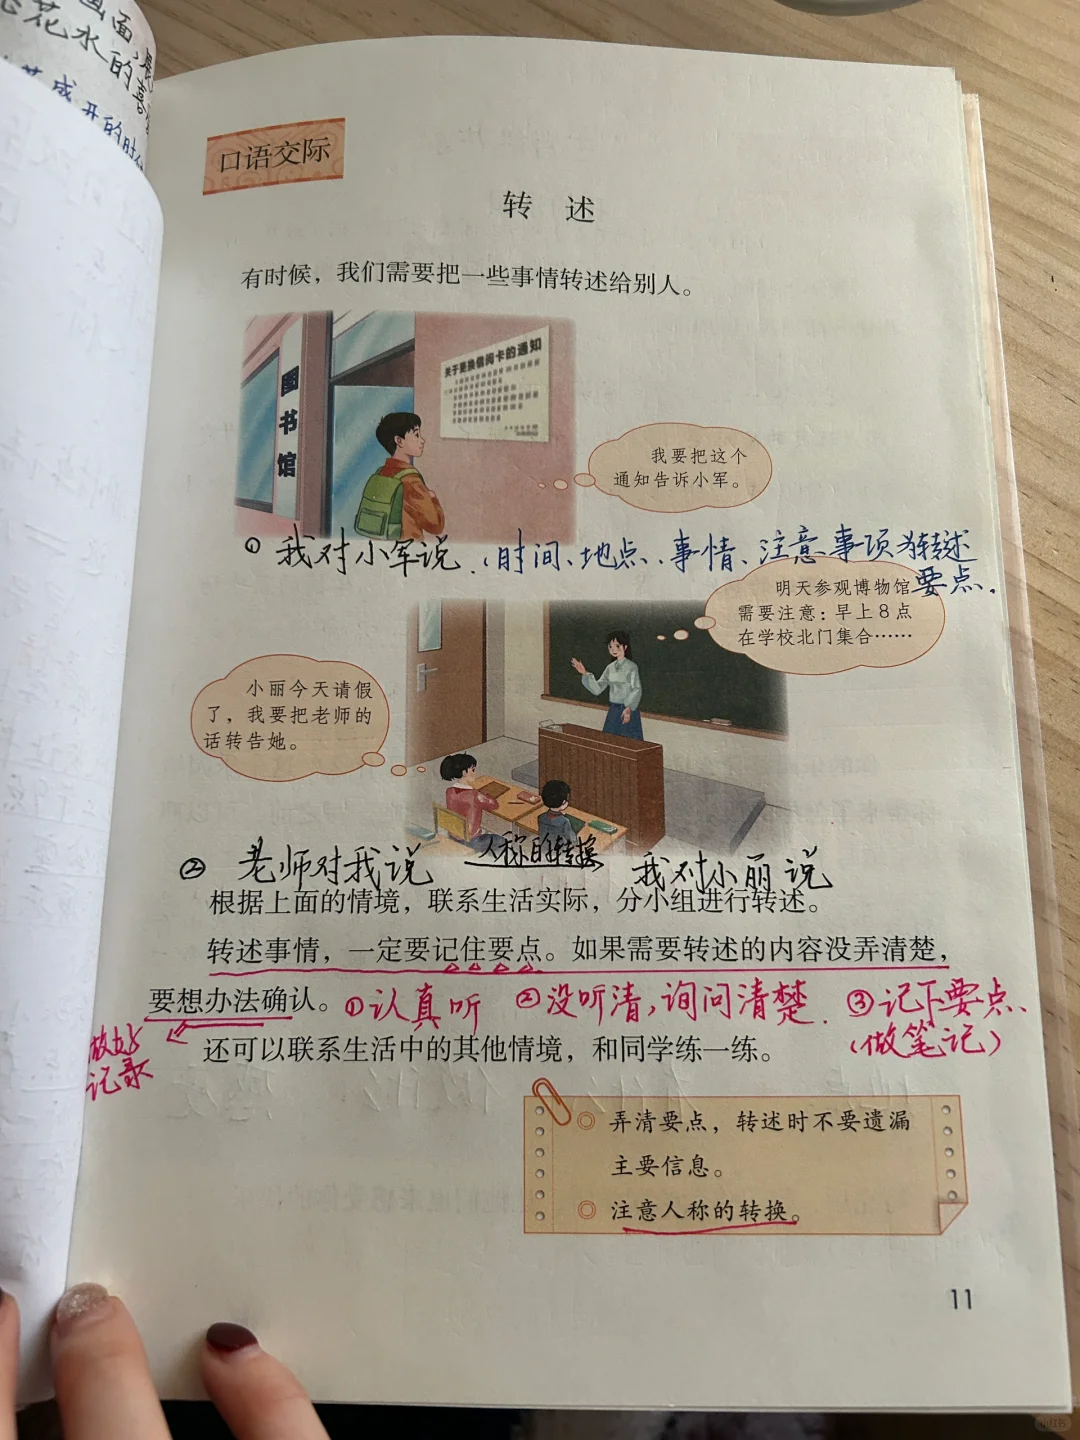 画面
花水的
开的时
口语交际
转 述
有时候，我们需要把一些事情转述给别人。
图书馆
关于更换借阅卡的通知
我要把这个
通知告诉小军。
① 我对小军说.（时间、地点、事情、注意事项为转述
要点.
明天参观博物馆
需要注意：早上8点
在学校北门集合……
小丽今天请假
了，我要把老师的
话转告她。
② 老师对我说 人称的转换 我对小丽说
根据上面的情境，联系生活实际，分小组进行转述。
转述事情，一定要记住要点。如果需要转述的内容没弄清楚，
要想办法确认。①认真听 ②没听清，询问清楚. ③记下要点、
（做笔记）
做好
记录
还可以联系生活中的其他情境，和同学练一练。
◎ 弄清要点，转述时不要遗漏
主要信息。
◎ 注意人称的转换。
11
小红书